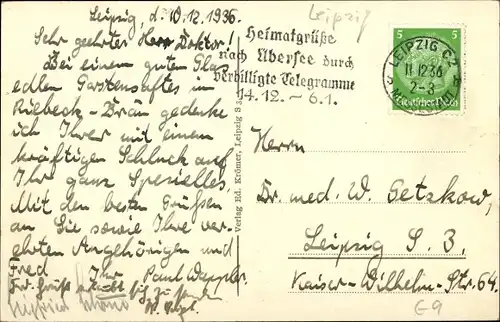 Leipzig, d. 10.12.1936.
Leipzig
Sehr geehrter Herr Doktor!
Bei einem guten Glas
edlen Gerstensaftes im
Riebeck-Bräu gedenke
ich Ihrer mit einem
kräftigen Schluck auf
Ihr ganz Spezielles.
Mit den besten Grüßen
an Sie sowie Ihre ver-
ehrten Angehörigen und
Fred Ihr Paul
Heimatgrüße
nach Übersee durch
verbilligte Telegramme
14.12. - 6.1.
5 5
Deutsches Reich
LEIPZIG C2
11.12.36
2-3
Verlag Ed. Krömer, Leipzig S 3
Herrn
Dr. med. W. Getzkow,
Leipzig S. 3.
Kaiser-Wilhelm-Str. 64.
E9